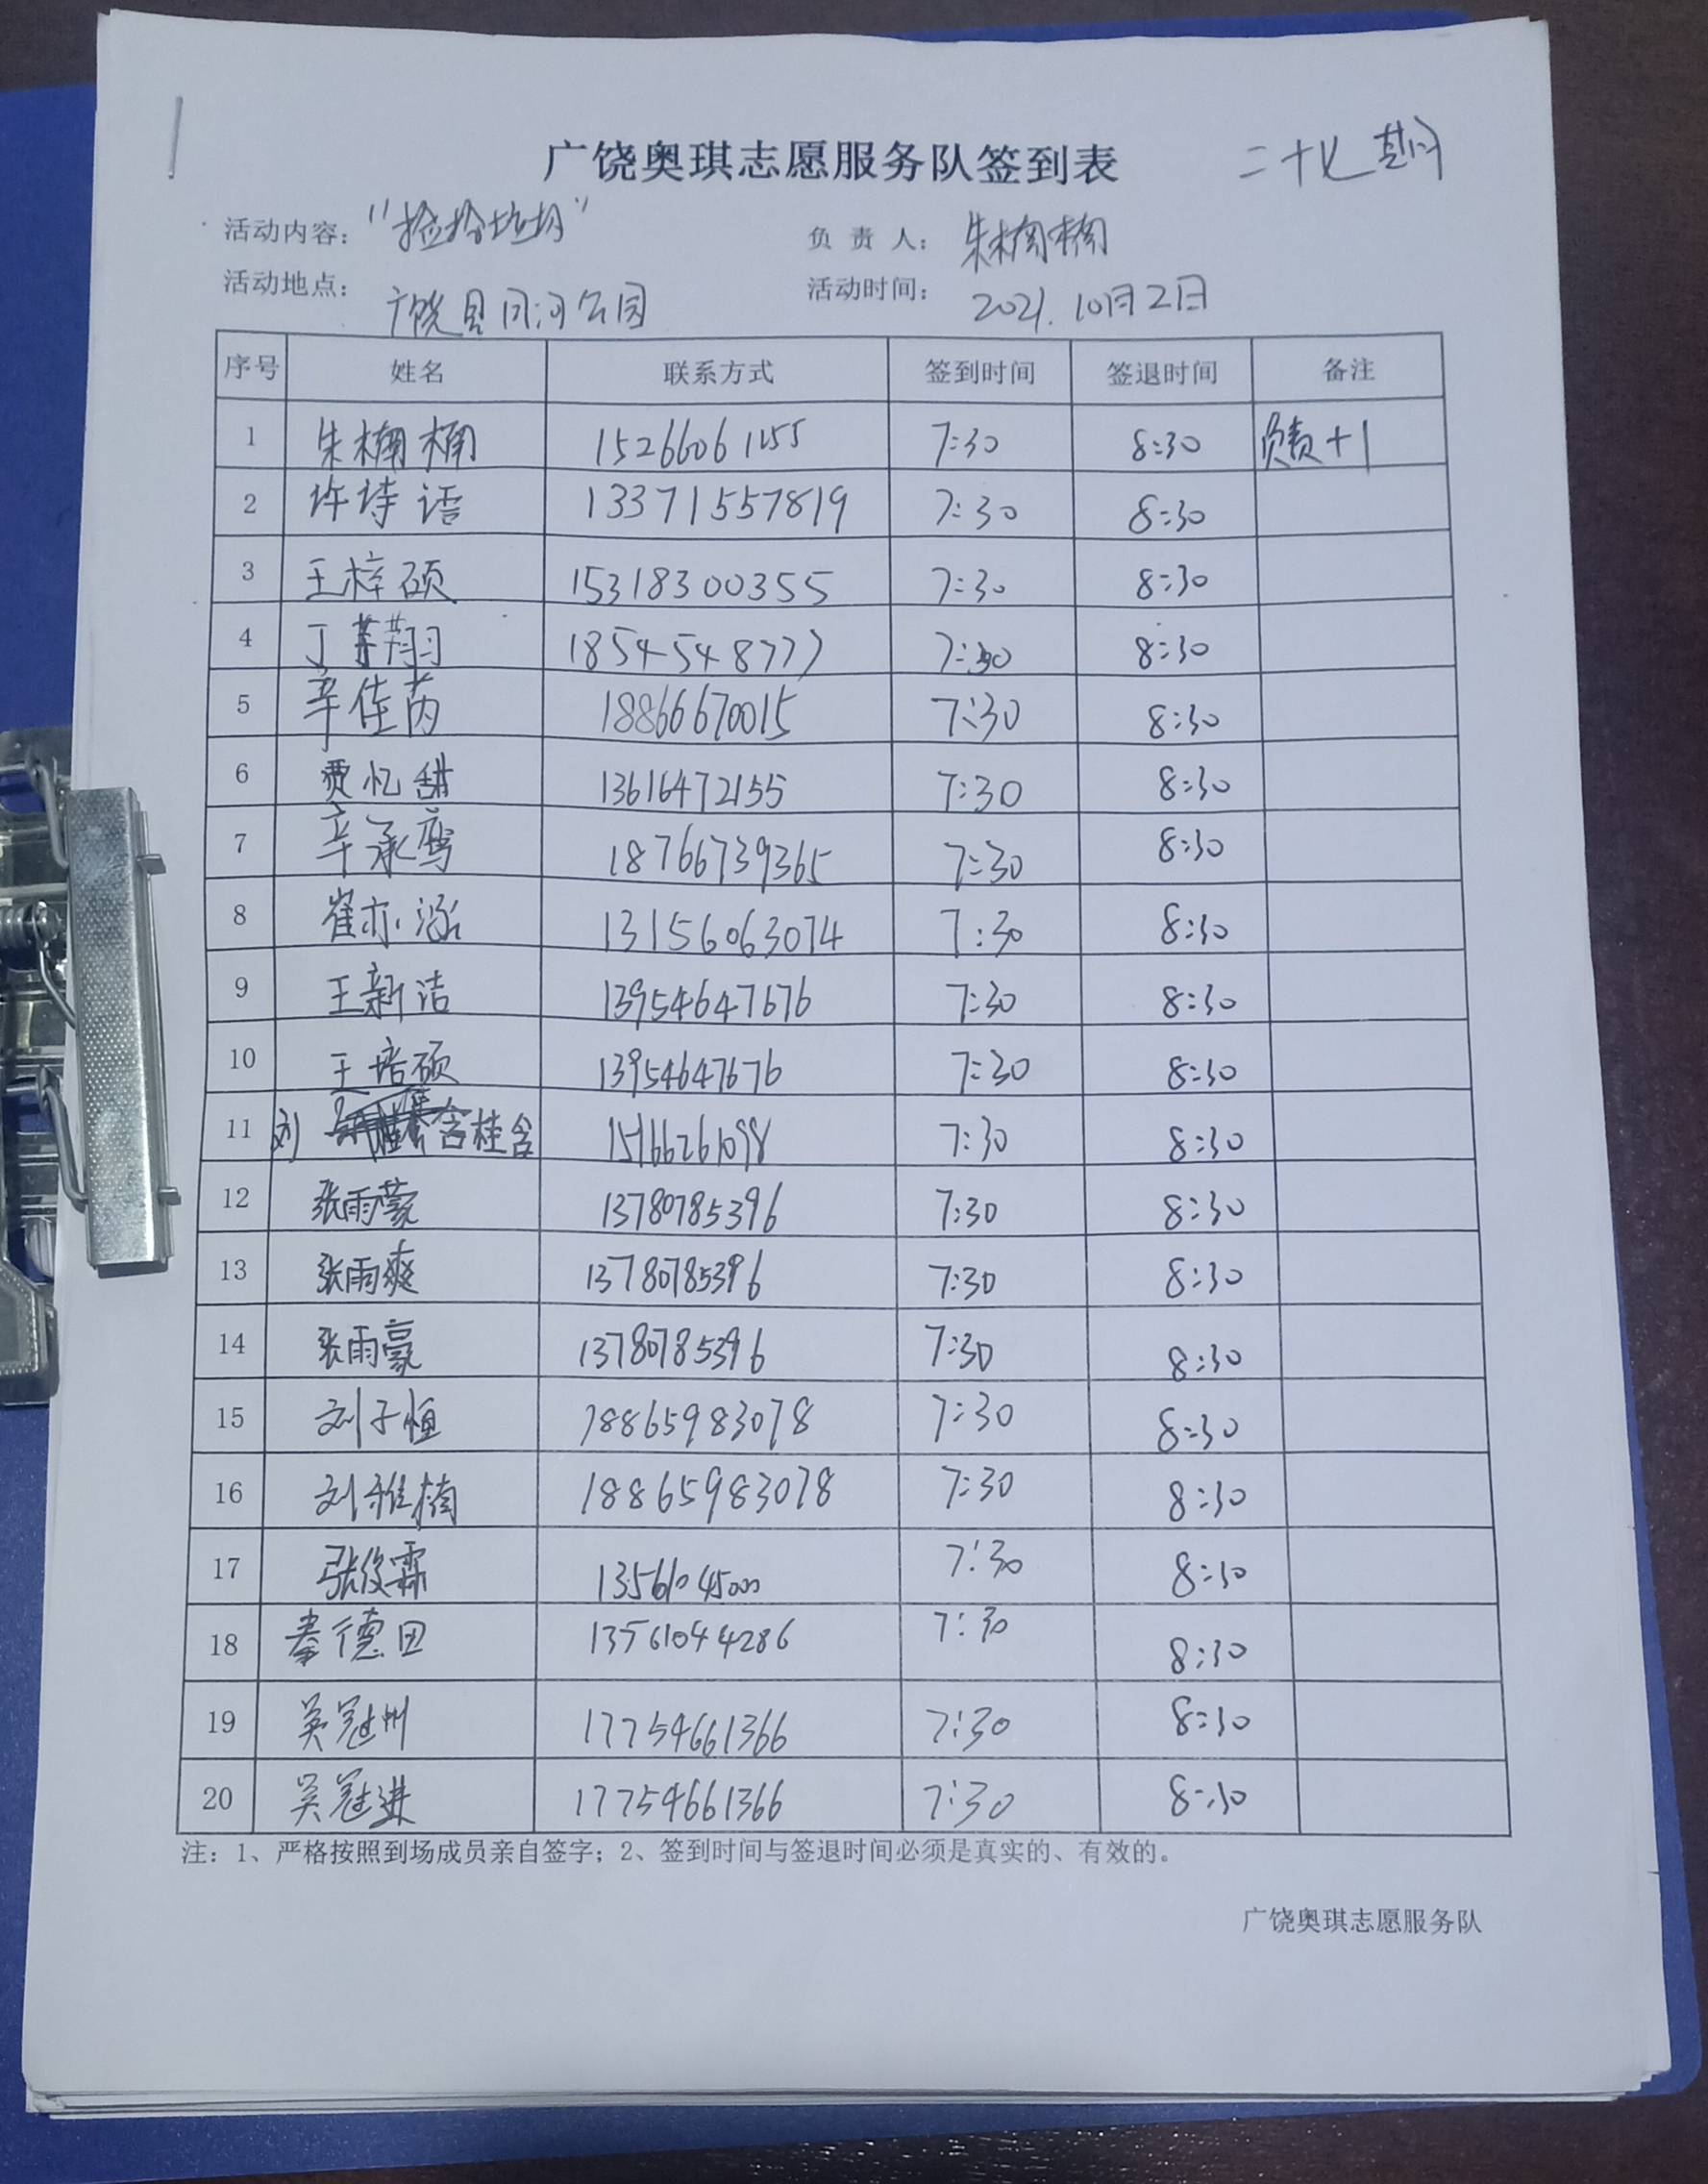 广饶奥琪志愿服务队签到表 二十七期
活动内容：“捡拾垃圾” 负责人：朱楠楠
活动地点：广饶县月河公园 活动时间：2021.10月2日
序号 姓名 联系方式 签到时间 签退时间 备注
1 朱楠楠 15266061255 7:30 8:30 负责+1
2 许诗语 13371557819 7:30 8:30
3 王梓硕 15318300355 7:30 8:30
4 丁 7:30 8:30
5 辛佳芮 18866670015 7:30 8:30
6 贾忆甜 13616472155 7:30 8:30
7 辛承鸾 18766739365 7:30 8:30
8 崔亦涵 13156063074 7:30 8:30
9 王新洁 13954647676 7:30 8:30
10 王培硕 13954647676 7:30 8:30
11 刘含桂含 7:30 8:30
12 张雨蒙 13780785396 7:30 8:30
13 张雨爽 13780785396 7:30 8:30
14 张雨豪 13780785396 7:30 8:30
15 刘子恒 18865983078 7:30 8:30
16 刘雅楠 18865983078 7:30 8:30
17 张俊霖 13561045000 7:30 8:30
18 秦德田 13561044286 7:30 8:30
19 吴冠州 17754661366 7:30 8:30
20 吴冠进 17754661366 7:30 8:30
注：1、严格按照到场成员亲自签字；2、签到时间与签退时间必须是真实的、有效的。
广饶奥琪志愿服务队